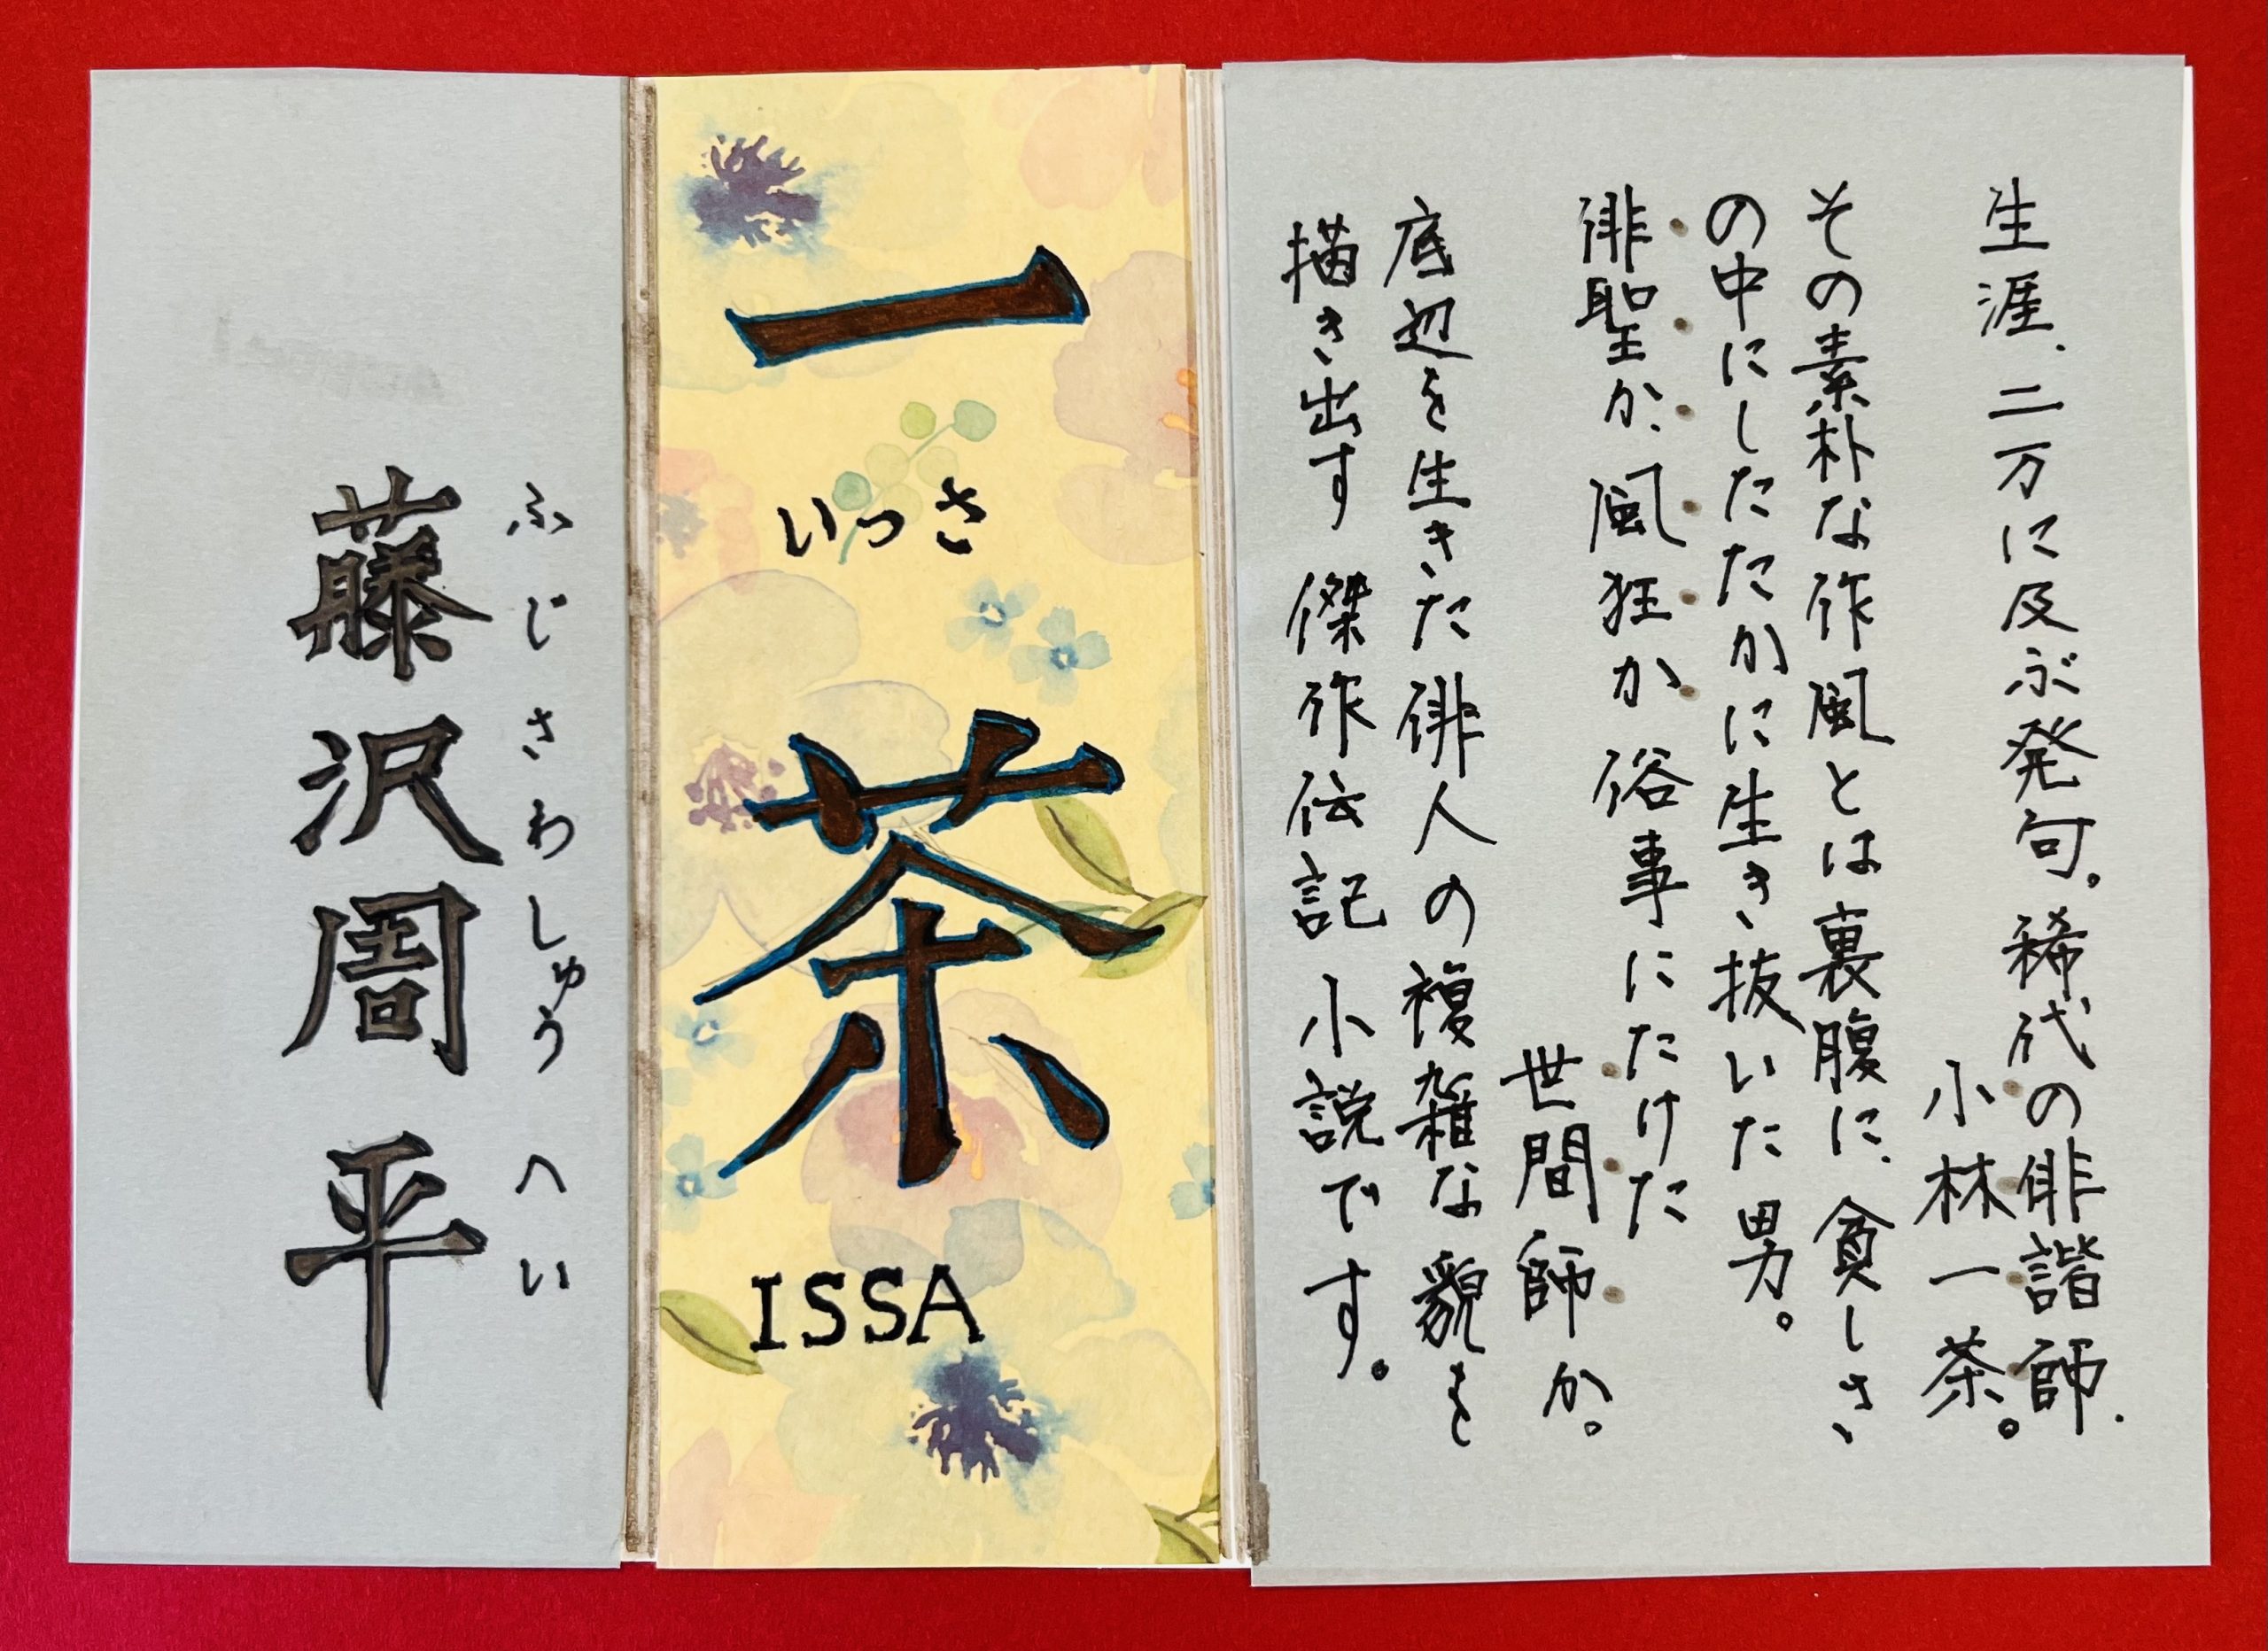 生涯、二万に及ぶ発句。稀代の俳諧師、
小林一茶。
その素朴な作風とは裏腹に、貧しさ
の中にしたたかに生き抜いた男。
俳聖か、風狂か俗事にたけた
世間師か。
底辺を生きた俳人の複雑な貌を
描き出す傑作伝記小説です。
一茶
いっさ
ISSA
ふじさわしゅうへい
藤沢周平